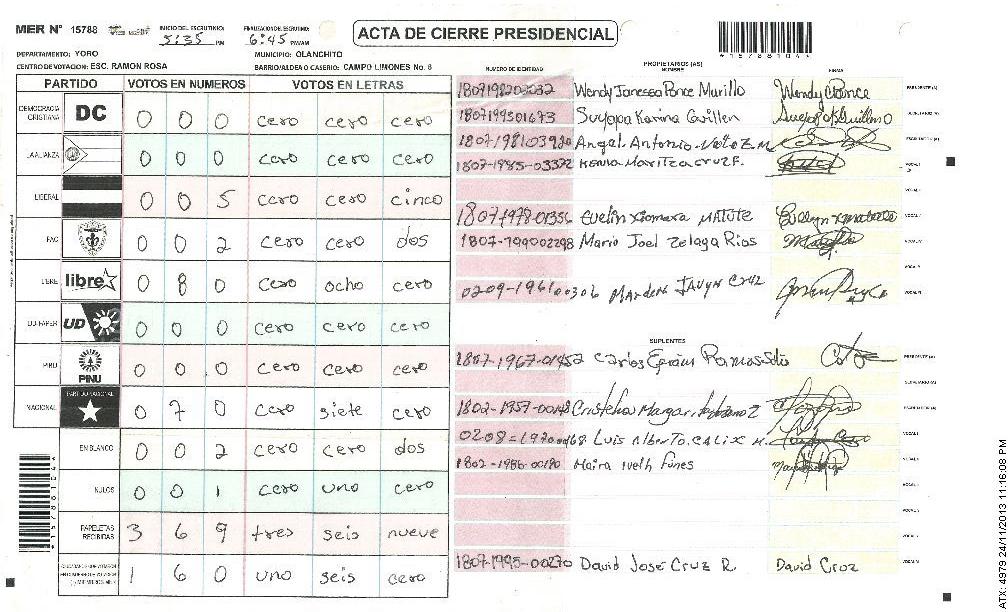 MER Nº 15788 INICIO DEL ESCRUTINIO: 5:35 PM FINALIZACION DEL ESCRUTINIO: 6:45 PM/AM
ACTA DE CIERRE PRESIDENCIAL
DEPARTAMENTO: YORO MUNICIPIO: OLANCHITO
CENTRO DE VOTACION: ESC. RAMON ROSA BARRIO/ALDEA O CASERIO: CAMPO LIMONES No. 8
PARTIDO VOTOS EN NUMEROS VOTOS EN LETRAS
DEMOCRACIA CRISTIANA DC 0 0 0 cero cero cero
LA ALIANZA 0 0 0 cero cero cero
LIBERAL 0 0 5 cero cero cinco
PAC 0 0 2 cero cero dos
LIBRE libre 0 8 0 cero ocho cero
UD-FAPER UD 0 0 0 cero cero cero
PINU PINU 0 0 0 cero cero cero
NACIONAL PARTIDO NACIONAL 0 7 0 cero siete cero
EN BLANCO 0 0 2 cero cero dos
NULOS 0 0 1 cero uno cero
PAPELETAS RECIBIDAS 3 6 9 tres seis nueve
1 6 0 uno seis cero
PROPIETARIOS (AS)
NUMERO DE IDENTIDAD NOMBRE FIRMA
Wendy Janessa Ponce Murillo Wendy Ponce PRESIDENTE (A)
1807199501673 Suyapa Karina Guillen SECRETARIO (A)
Angel Antonio ESCRUTADOR (A)
1807-1985-03372 Kenia Maritza Cruz F. VOCAL I
1807-1978-01356 Evelin Xiomara Matute
1807-199002298 Mario Joel Zelaya Rios
0209-1961 00306 Cruz
SUPLENTES
1807-1967-01452 Carlos Efrain PRESIDENTE (A)
SECRETARIO (A)
1802-1957-00148 ESCRUTADOR (A)
Luis Alberto Calix M.
1802-1986-00190 Maira Iveth Funes
1807-1995-00270 David José Cruz R. David Cruz
*15788104*
*15788104*
ATX: 4979 24/11/2013 11:16:08 PM